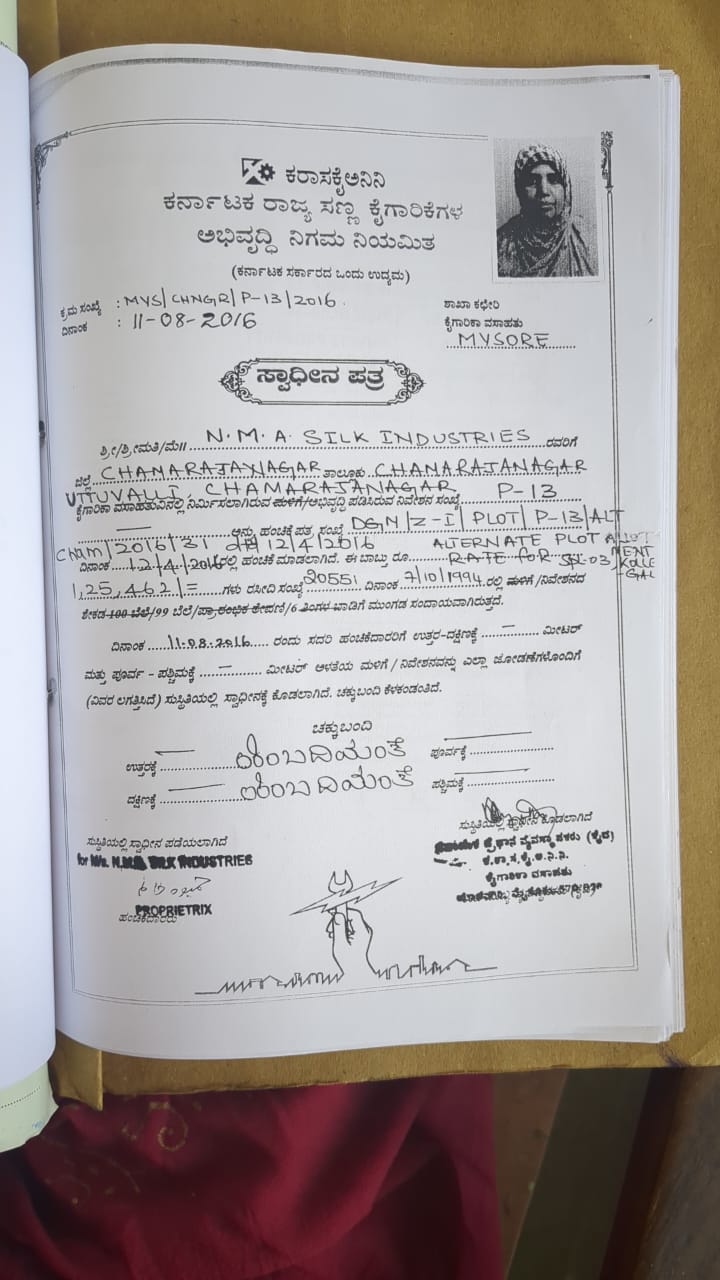 ಕರಾಸಕೈಅನಿನಿ
ಕರ್ನಾಟಕ ರಾಜ್ಯ ಸಣ್ಣ ಕೈಗಾರಿಕೆಗಳ
ಅಭಿವೃದ್ಧಿ ನಿಗಮ ನಿಯಮಿತ
(ಕರ್ನಾಟಕ ಸರ್ಕಾರದ ಒಂದು ಉದ್ಯಮ)
ಕ್ರಮ ಸಂಖ್ಯೆ : MYS/CHNGR/P-13/2016
ದಿನಾಂಕ : 11-08-2016
ಶಾಖಾ ಕಛೇರಿ
ಕೈಗಾರಿಕಾ ವಸಾಹತು
MYSORE
ಸ್ವಾಧೀನ ಪತ್ರ
ಶ್ರೀ/ಶ್ರೀಮತಿ/ಮೆ॥ N.M.A. SILK INDUSTRIES ರವರಿಗೆ
ಜಿಲ್ಲೆ CHAMARAJANAGAR ತಾಲೂಕು CHAMARAJANAGAR
UTTUVALLI, CHAMARAJANAGAR P-13
ಕೈಗಾರಿಕಾ ವಸಾಹತುವಿನಲ್ಲಿ ನಿರ್ಮಿಸಲಾಗಿರುವ ಮಳಿಗೆ/ಅಭಿವೃದ್ಧಿ ಪಡಿಸಿರುವ ನಿವೇಶನ ಸಂಖ್ಯೆ
— ಅನ್ನು ಹಂಚಿಕೆ ಪತ್ರ ಸಂಖ್ಯೆ DGM/Z-I/PLOT/P-13/ALT
Cham/2016/31 12/4/2016 ALTERNATE PLOT ALLOTMENT
ದಿನಾಂಕ 12/4/2016 ರಲ್ಲಿ ಹಂಚಿಕೆ ಮಾಡಲಾಗಿದೆ. ಈ ಬಾಬ್ತು ರೂ RATE for
1,25,462/= ಗಳು ರಸೀದಿ ಸಂಖ್ಯೆ 20551 ದಿನಾಂಕ 7/10/1994 ರಲ್ಲಿ ಮಳಿಗೆ/ನಿವೇಶನದ
ಶೇಕಡ 100 ಬೆಲೆ/99 ಬೆಲೆ/ಪ್ರಾರಂಭಿಕ ಠೇವಣಿ/6 ತಿಂಗಳ ಬಾಡಿಗೆ ಮುಂಗಡ ಸಂದಾಯವಾಗಿರುತ್ತದೆ.
ದಿನಾಂಕ 11.08.2016 ರಂದು ಸದರಿ ಹಂಚಿಕೆದಾರರಿಗೆ ಉತ್ತರ-ದಕ್ಷಿಣಕ್ಕೆ — ಮೀಟರ್
ಮತ್ತು ಪೂರ್ವ - ಪಶ್ಚಿಮಕ್ಕೆ — ಮೀಟರ್ ಅಳತೆಯ ಮಳಿಗೆ / ನಿವೇಶನವನ್ನು ಎಲ್ಲಾ ಜೋಡಣೆಗಳೊಂದಿಗೆ
(ವಿವರ ಲಗತ್ತಿಸಿದೆ) ಸುಸ್ಥಿತಿಯಲ್ಲಿ ಸ್ವಾಧೀನಕ್ಕೆ ಕೊಡಲಾಗಿದೆ. ಚಕ್ಕುಬಂದಿ ಕೆಳಕಂಡಂತಿದೆ.
ಚಕ್ಕುಬಂದಿ
ಉತ್ತರಕ್ಕೆ — ಹಿಂಬದಿಯಂತೆ ಪೂರ್ವಕ್ಕೆ —
ದಕ್ಷಿಣಕ್ಕೆ — ಹಿಂಬದಿಯಂತೆ ಪಶ್ಚಿಮಕ್ಕೆ —
ಸುಸ್ಥಿತಿಯಲ್ಲಿ ಸ್ವಾಧೀನ ಪಡೆಯಲಾಗಿದೆ
for M/s. N.M.A SILK INDUSTRIES
PROPRIETRIX
ಹಂಚಿಕೆದಾರರು
ಸುಸ್ಥಿತಿಯಲ್ಲಿ ಸ್ವಾಧೀನ ಕೊಡಲಾಗಿದೆ
ಪ್ರಧಾನ ವ್ಯವಸ್ಥಾಪಕರು
ಕ.ರಾ.ಸ.ಕೈ.ಅ.ನಿ.ನಿ.
ಕೈಗಾರಿಕಾ ವಸಾಹತು